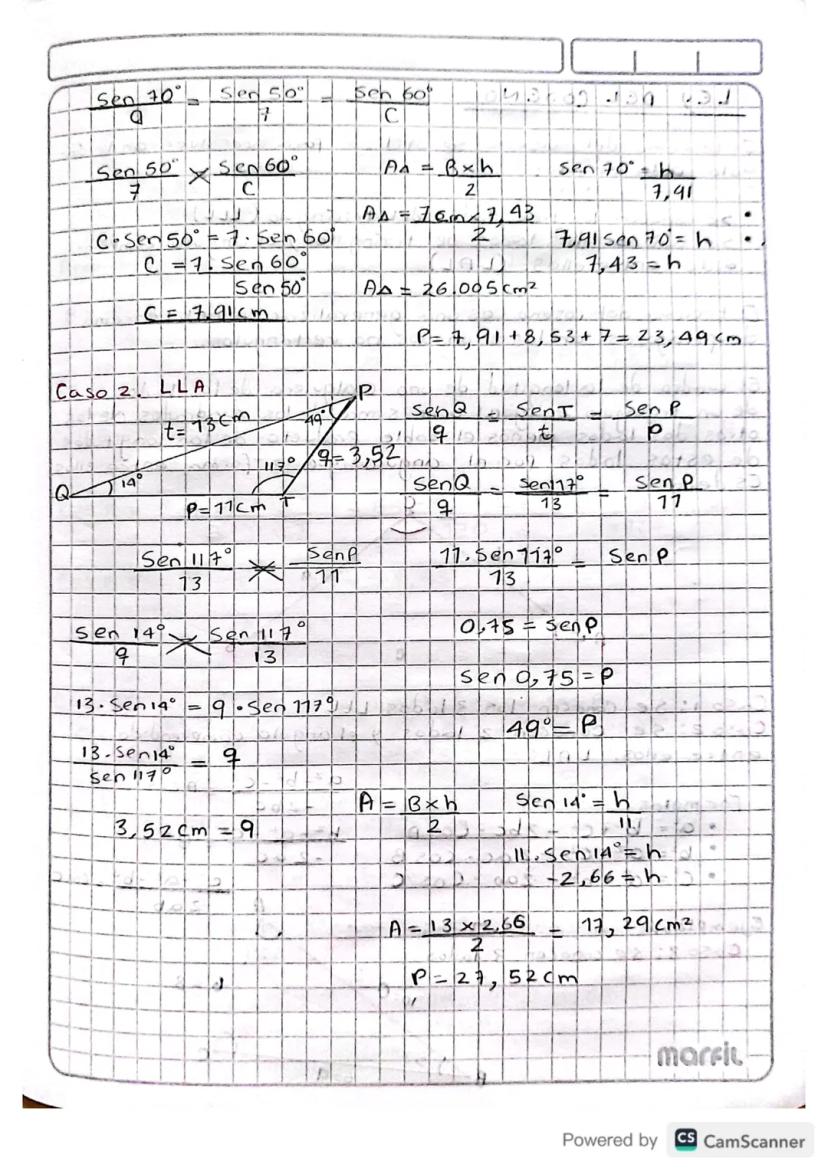 Sen 70° = Sen 50° = Sen 60°
a 7 C
Sen 50° × Sen 60°
7 C
C·Sen 50° = 7·Sen 60°
C = 7·Sen 60°
Sen 50°
C = 7.91cm
A△ = B×h
2
A△ = 7cm×7,43
2
A△ = 26.005cm²
Sen 70° = h
7,91
7,91 sen 70° = h
7,43 = h
P= 7,91 + 8,53 + 7 = 23,49cm
Caso 2. LLA
P
t= 13cm
49°
q= 3,52
117°
Q
14°
P=11cm T
SenQ = SenT = Sen P
q t P
SenQ = Sen117° = Sen P
q 13 11
Sen 117° × SenP
13 11
11.Sen 117° = Sen P
13
0,75 = SenP
sen 0,75 = P
49° = P
Sen 14° × Sen 117°
q 13
13·Sen14° = q·Sen 117°
13·Sen14° = q
Sen 117°
3,52cm = q
A = B×h
2
Sen 14° = h
11
11.Sen14° = h
2,66 = h
A = 13×2,66 = 17,29cm²
2
P = 27,52cm
marfil
Powered by CS CamScanner